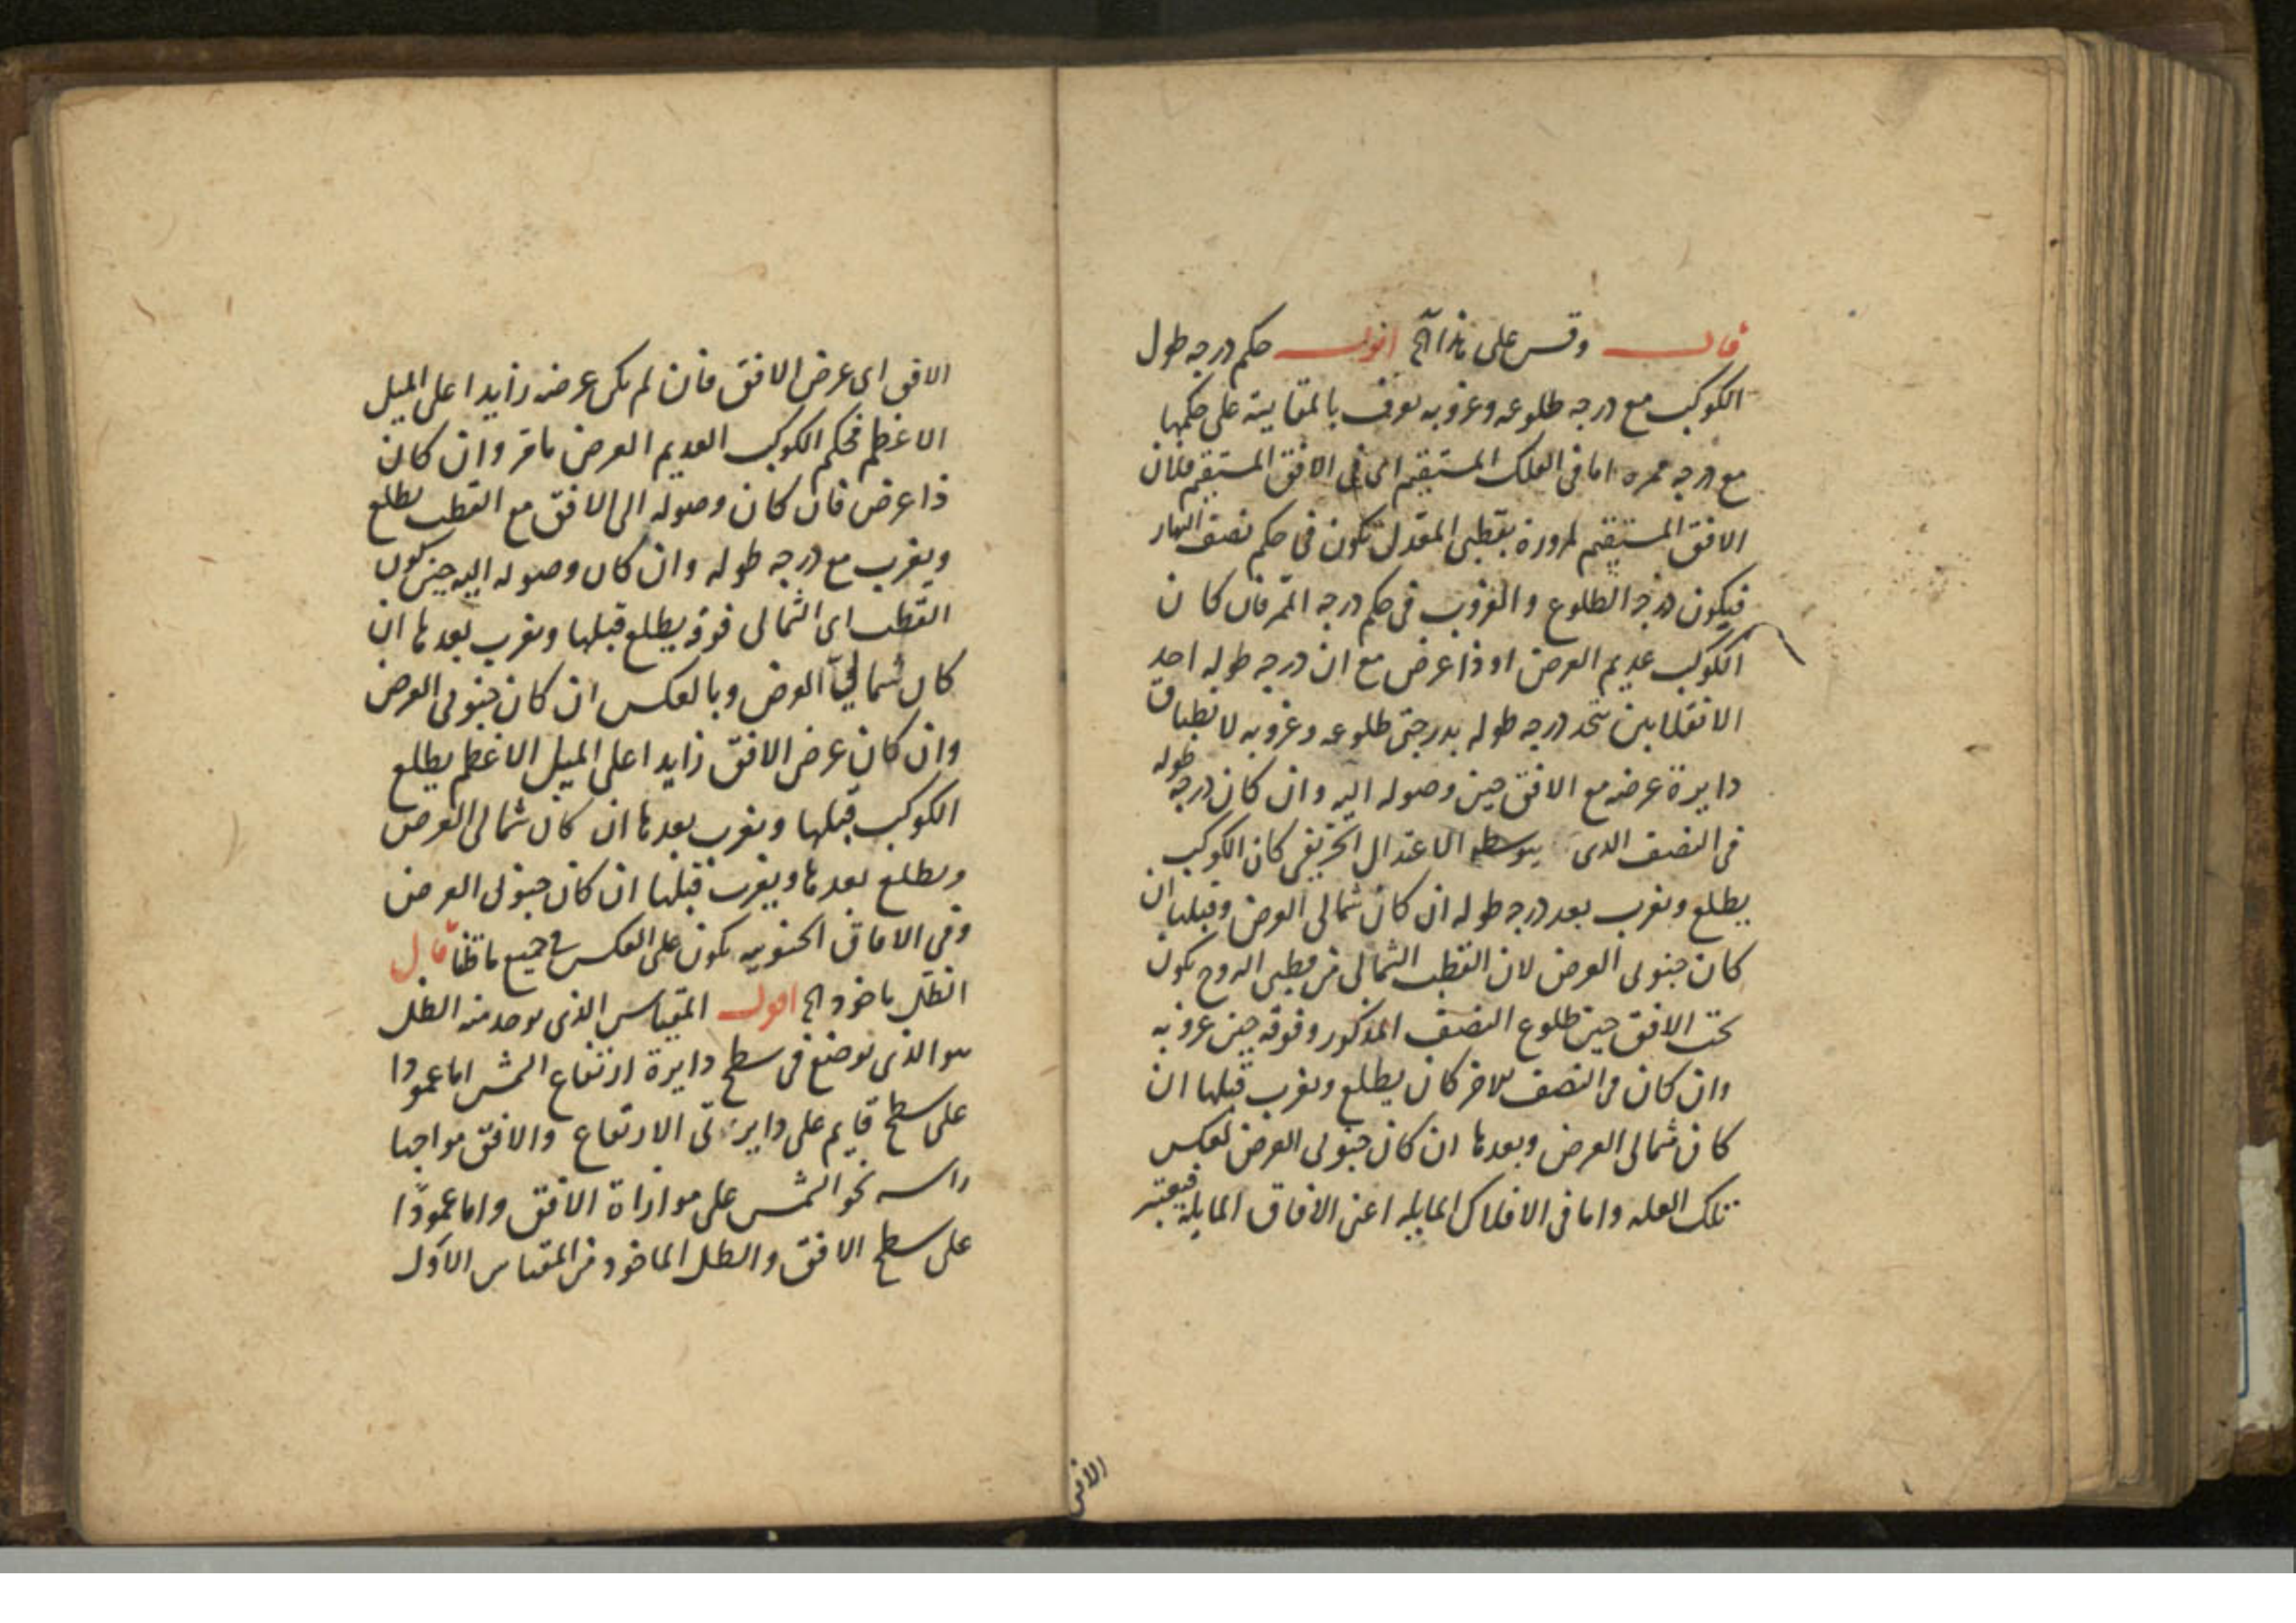 قال وقس على هذا آه اقول حكم درجه طول
الكوكب مع درجه طلوعه وغروبه يعرف بالمقايسة على حكمها
مع درجه ممره اما فى الفلك المستقيم اى فى الافق المستقيم فلان
الافق المستقيم لمروره بقطبى المعدل تكون فى حكم نصف النهار
فيكون درجه الطلوع والغروب فى حكم درجه الممر فان كان
الكوكب عديم العرض او ذا عرض مع ان درجه طوله احد
الانقلابين تتحد درجه طوله بدرجتى طلوعه وغروبه لانطباق
دايرة عرضه مع الافق حين وصوله اليه وان كان درجه طوله
فى النصف الذى يتوسطه الاعتدال الخريفى كان الكوكب
يطلع ويغرب بعد درجه طوله ان كان شمالى العرض وقبلها ان
كان جنوبى العرض لان القطب الشمالى من قطبى البروج يكون
تحت الافق حين طلوع النصف المذكور وفوقه حين غروبه
وان كان فى النصف الاخر كان يطلع ويغرب قبلها ان
كان شمالى العرض وبعدها ان كان جنوبى العرض لعكس
تلك العله واما فى الافلاك المايله اعنى الافاق المايله فيعتبر
الافق
الافق اى عرض الافق فان لم يكن عرضه زايدا على الميل
الاعظم فحكم الكوكب العديم العرض مامر وان كان
ذا عرض فان كان وصوله الى الافق مع القطب يطلع
ويغرب مع درجه طوله وان كان وصوله اليه حين يكون
القطب اى الشمالى فوقه يطلع قبلها ويغرب بعدها ان
كان شمالى العرض وبالعكس ان كان جنوبى العرض
وان كان عرض الافق زايدا على الميل الاعظم يطلع
الكوكب قبلها ويغرب بعدها ان كان شمالى العرض
ويطلع بعدها ويغرب قبلها ان كان جنوبى العرض
وفى الافاق الجنوبيه يكون على العكس فى جميع ما قلنا قال
الظل ماخوذ آه اقول المقياس الذى يوخذ منه الظل
هو الذى يوضع فى سطح دايرة ارتفاع الشمس اما عمودا
على سطح قايم على دايرتى الارتفاع والافق مواجها
راسه نحو الشمس على موازاة الافق واما عمودًا
على سطح الافق والظل الماخوذ من المقياس الاول